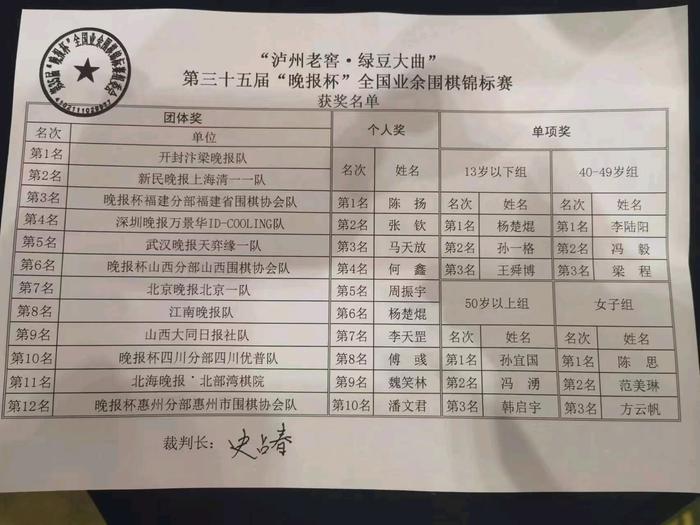 “泸州老窖·绿豆大曲”
第三十五届“晚报杯”全国业余围棋锦标赛
获奖名单
团体奖
名次 单位
第1名 开封汴梁晚报队
第2名 新民晚报上海清一一队
第3名 晚报杯福建分部福建省围棋协会队
第4名 深圳晚报万景华ID-COOLING队
第5名 武汉晚报天弈缘一队
第6名 晚报杯山西分部山西围棋协会队
第7名 北京晚报北京一队
第8名 江南晚报队
第9名 山西大同日报社队
第10名 晚报杯四川分部四川优普队
第11名 北海晚报·北部湾棋院
第12名 晚报杯惠州分部惠州市围棋协会队
个人奖
名次 姓名
第1名 陈 扬
第2名 张 钦
第3名 马天放
第4名 何 鑫
第5名 周振宇
第6名 杨楚焜
第7名 李天罡
第8名 傅 彧
第9名 魏笑林
第10名 潘文君
单项奖
13岁以下组
名次 姓名
第1名 杨楚焜
第2名 孙一格
第3名 王舜博
40-49岁组
名次 姓名
第1名 李陆阳
第2名 冯 毅
第3名 梁 程
50岁以上组
名次 姓名
第1名 孙宜国
第2名 冯 湧
第3名 韩启宇
女子组
名次 姓名
第1名 陈 思
第2名 范美琳
第3名 方云帆
裁判长: 史占春